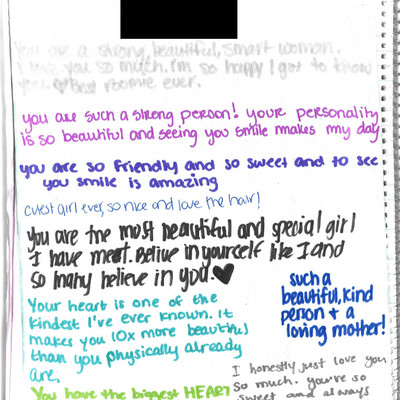 You are a strong, beautiful, smart woman.
I love you so much. I'm so happy I got to know
you. ♥ Best roomie ever.
you are such a strong person! your personality
is so beautiful and seeing you smile makes my day
you are so friendly and so sweet and to see
you smile is amazing
cutest girl ever, so nice and love the hair!
You are the most beautiful and special girl
I have meet. Belive in yourself like I and
so many believe in you. ♥
such a
beautiful, kind
person + a
loving mother!
Your heart is one of the
kindest I've ever known. It
makes you 10x more beautiful
than you physically already
are.
I honestly just love you
so much. you're so
sweet and always
You have the biggest HEART